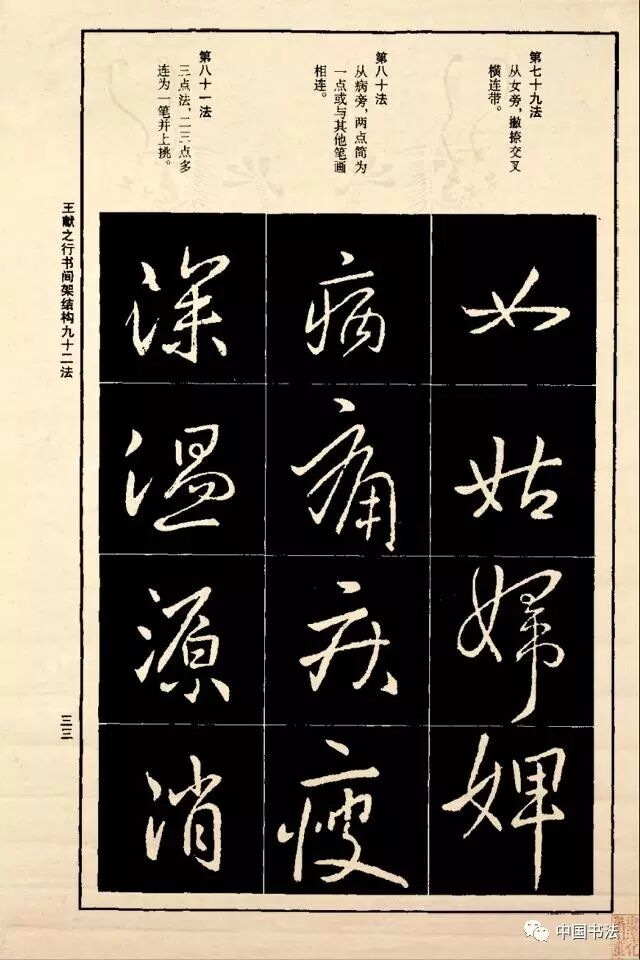 第七十九法
从女旁，撇捺交叉
横连带。
第八十法
从病旁，两点简为
一点或与其他笔画
相连。
第八十一法
三点法，二三点多
连为一笔并上挑。
女
姑
婦
婢
病
痛
疾
瘦
深
温
源
消
王献之行书间架结构九十二法
三三
中国书法